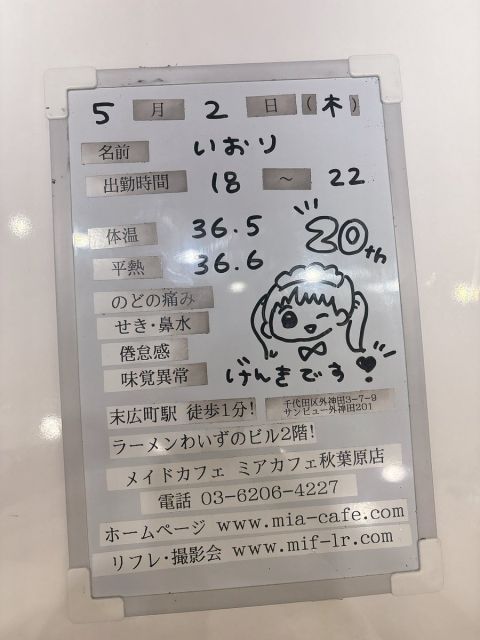 5月2日(木)
名前 いおり
出勤時間 18 ～ 22
体温 36.5
平熱 36.6
20th
のどの痛み
せき・鼻水
倦怠感
味覚異常
げんきです
末広町駅 徒歩1分! 千代田区外神田3-7-9
サンビュー外神田201
ラーメンわいずのビル2階!
メイドカフェ ミアカフェ秋葉原店
電話 03-6206-4227
ホームページ www.mia-cafe.com
リフレ・撮影会 www.mif-lr.com